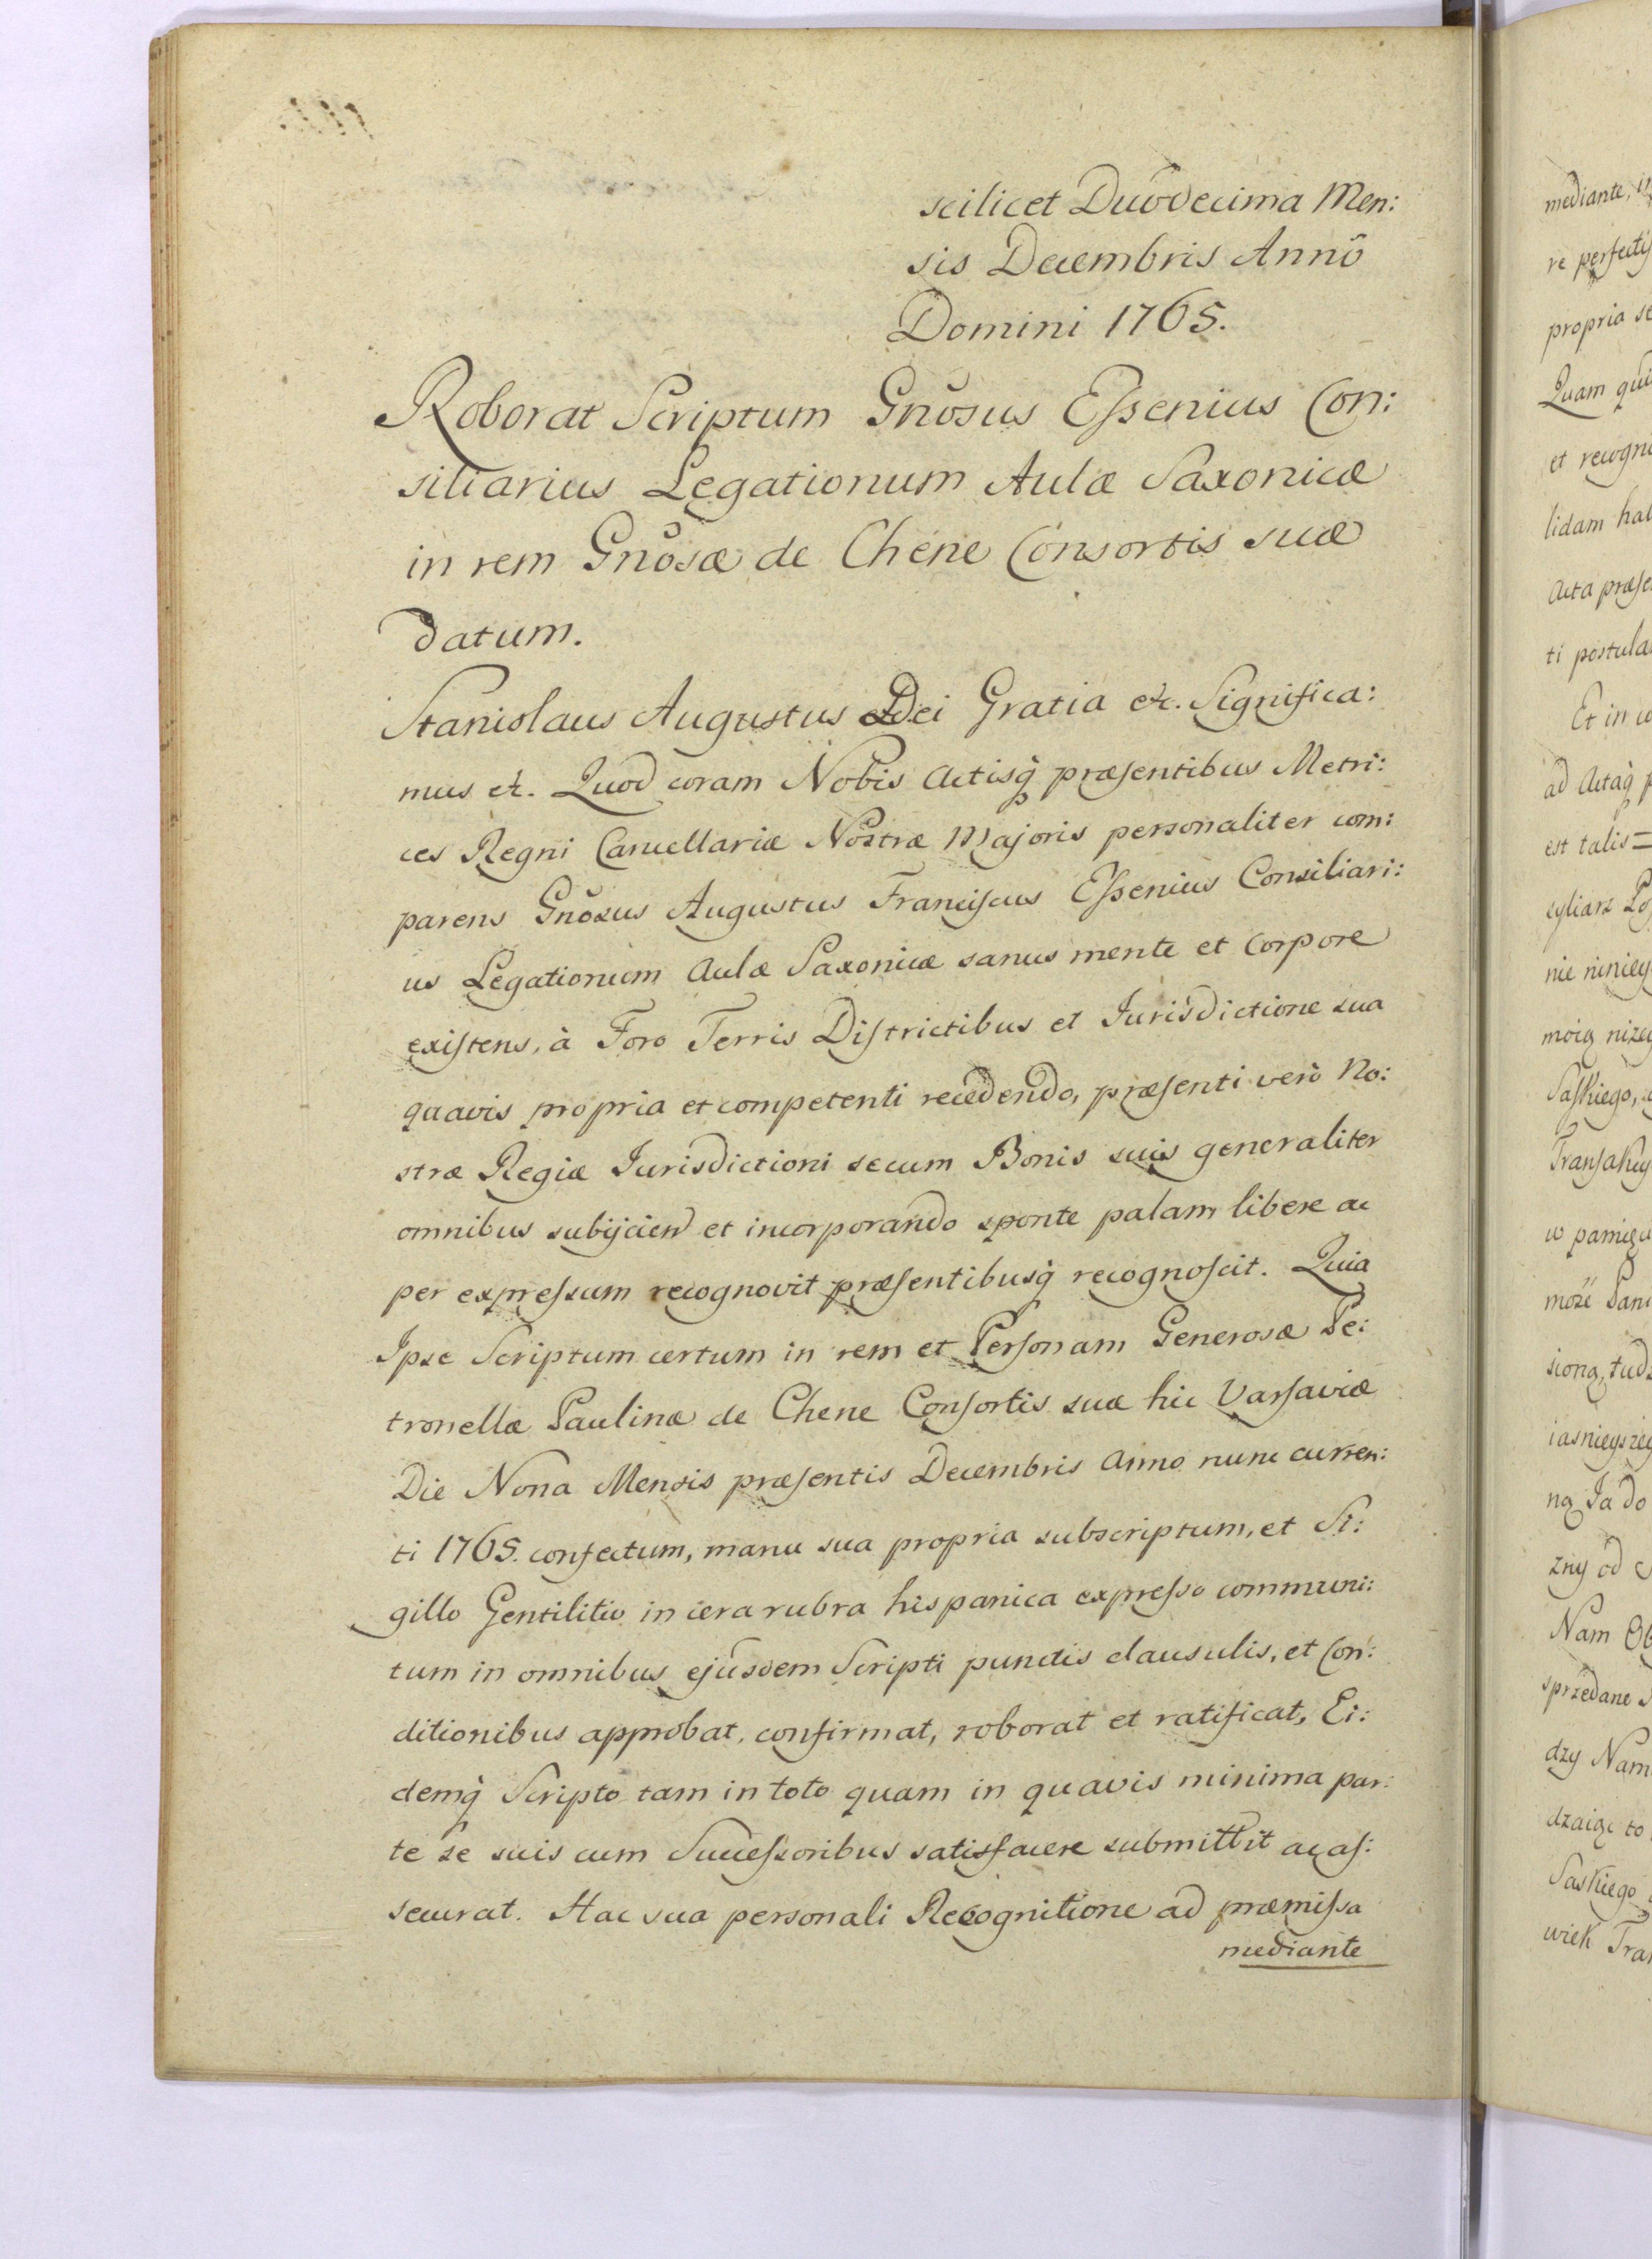 scilicet Duodecima Men:
sis Decembris Annô
Domini 1765.
Roborat Scriptum Gnõsus Essenius Con:
siliarius Legationum Aulæ Saxonicæ
in rem Gnõsæ de Chéne Consortis suæ
datum.
Stanislaus Augustus Dei Gratia etc. Significa:
mus etc. Quod coram Nobis Actisq̀ præsentibus Metri:
ces Regni Cancellariæ Nostræ Majoris personaliter com:
parens Gnõsus Augustus Franciscus Essenius Consiliari:
us Legationum Aulæ Saxonicæ sanus mente et Corpore
existens, à Foro Terris Districtibus et Jurisdictione sua
quavis propria et competenti recedendo, præsenti verò No:
stræ Regiæ Jurisdictioni secum Bonis suis generaliter
omnibus subijcien et incorporando sponte palam libere ac
per expressum recognovit præsentibusq̀ recognoscit. Quia
Ipse Scriptum certum in rem et Personam Generosæ Pe:
tronellæ Paulinæ de Chene Consortis suæ hic Varsaviæ
Die Nona Mensis præsentis Decembris Anno nunc curren:
ti 1765. confectum, manu sua propria subscriptum, et Si:
gillo Gentilitio in cera rubra hispanica expresso communi:
tum in omnibus ejusdem Scripti punctis clausulis, et Con:
ditionibus approbat, confirmat, roborat et ratificat, Ei:
demq̀ Scripto tam in toto quam in quavis minima par:
te se suis cum Successoribus satisfacere submittit ac as:
securat. Hac sua personali Recognitione ad præmissa
mediante
mediante,
re perfectis
propria
Quam
et
lidam
Acta
ti
Et in
ad Actaq̀
est talis =
nie
moią
Saskiego,
w
może
ną Ja do
zny od
Nam
sprzedane
dzy Nam
dzaiąc to
Saskiego
wiek